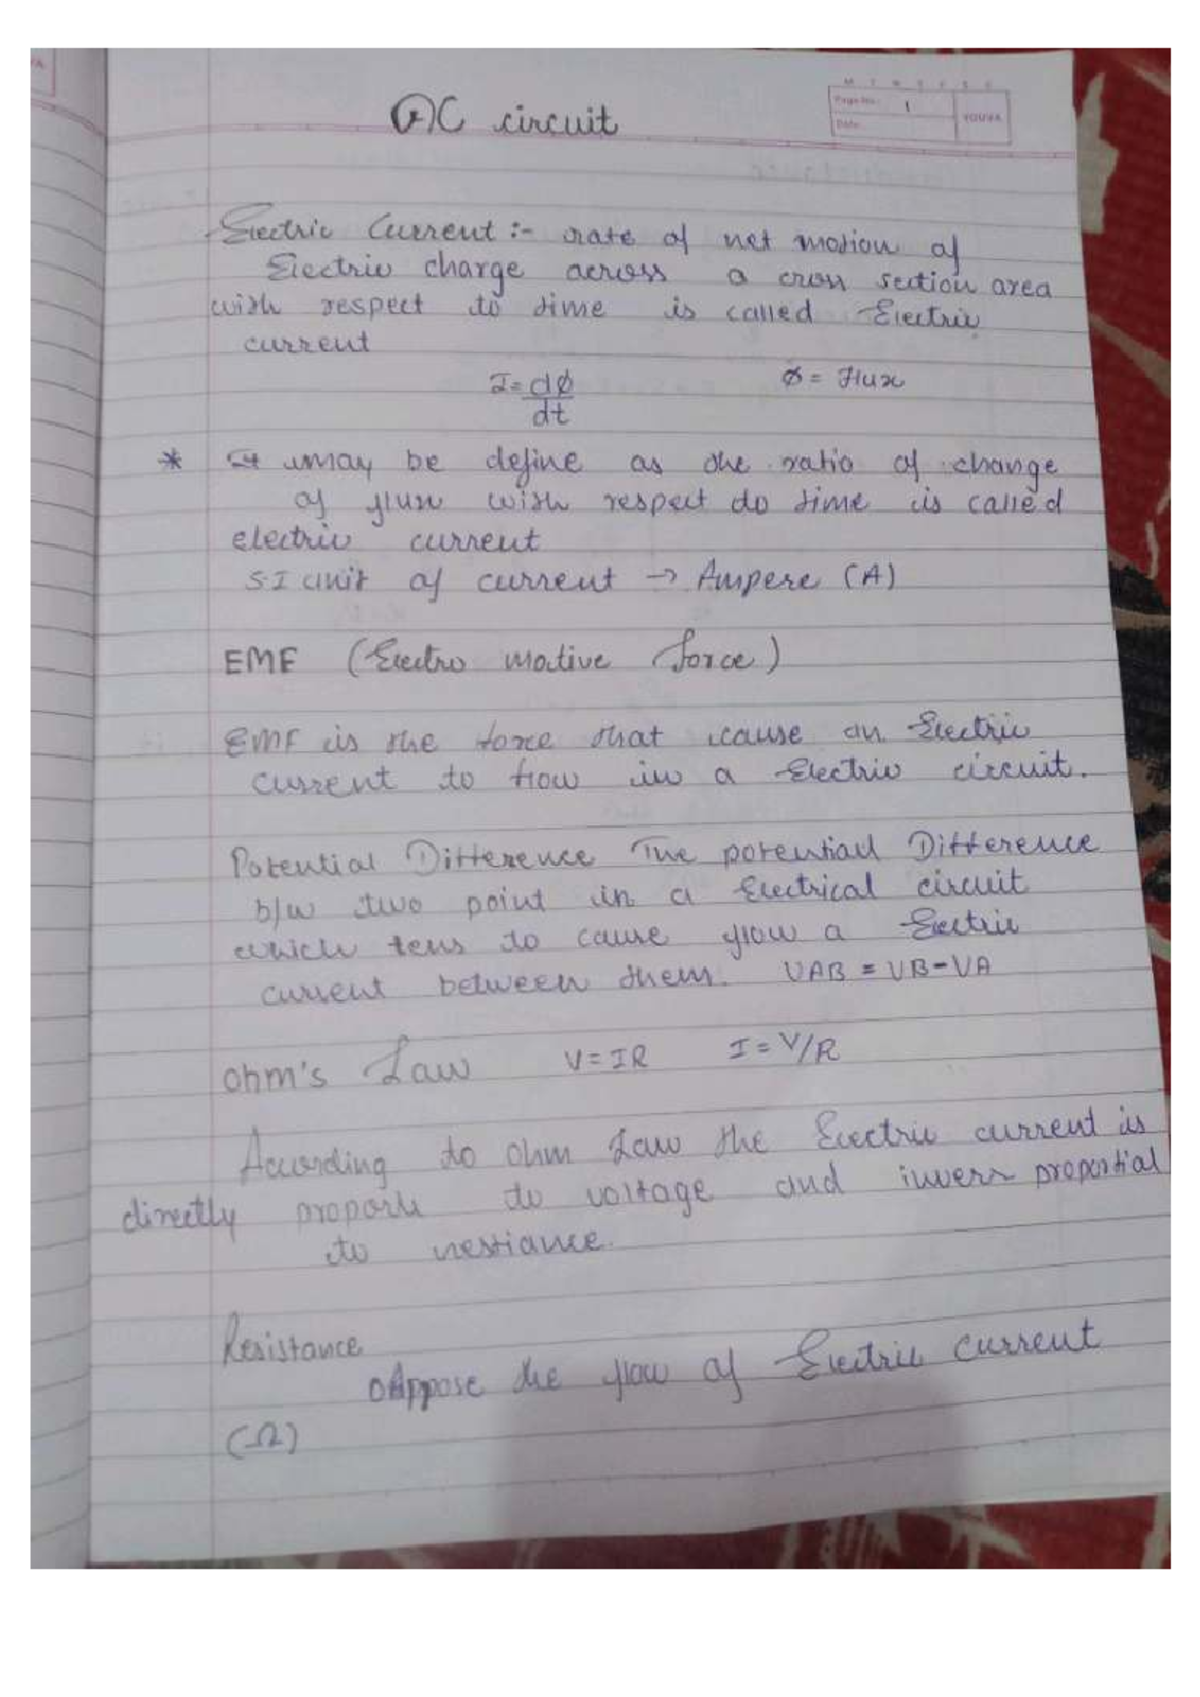 DC circuit
Page No.: 1
Date
YOUVA
Electric Current :- rate of net motion of
Electric charge across a cross section area
with respect to time is called Electric
current
I = dϕ/dt ϕ = flux
* It may be define as the ratio of change
of flux with respect to time is called
electric current
S I unit of current → Ampere (A)
EMF (Electro motive force)
EMF is the force that cause an Electric
current to flow in a Electric circuit.
Potential Difference The potential Difference
b/w two point in a Electrical circuit
which tens to cause flow a Electric
current between them. VAB = VB-VA
ohm's Law V = IR I = V/R
According to ohm Law the Electric current is
directly to voltage and invers
to
Resistance
oppose the flow of Electric current
(Ω)